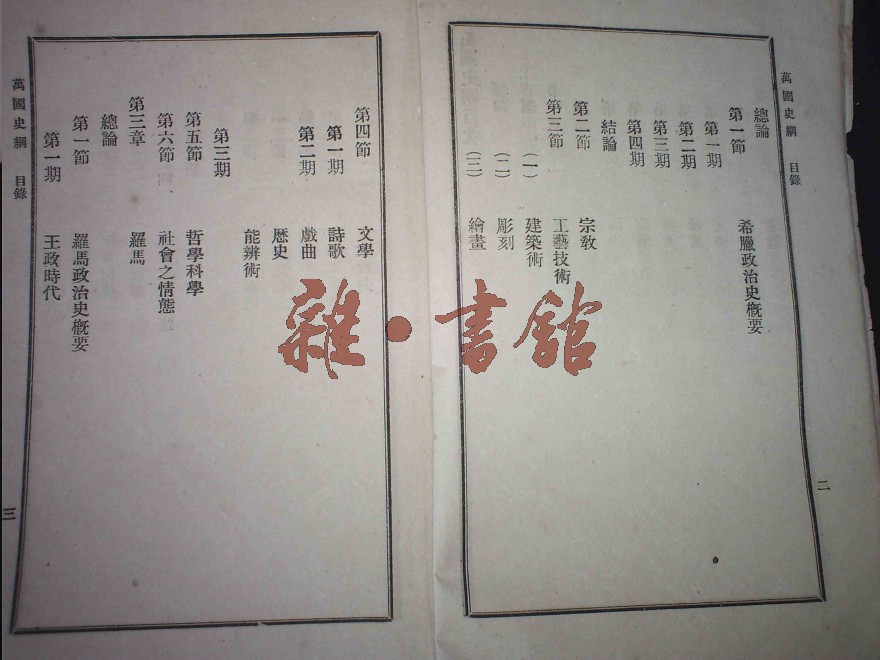 萬國史綱 目錄
二
總論
第一節 希臘政治史概要
第一期
第二期
第三期
第四期
結論
第二節 宗教
第三節 工藝技術
(一) 建築術
(二) 彫刻
(三) 繪畫
第四節 文學
第一期 詩歌
第二期 戲曲
歷史
第三期 能辨術
第五節 哲學科學
第六節 社會之情態
第三章 羅馬
總論
第一節 羅馬政治史概要
第一期 王政時代
萬國史綱 目錄
三
雜·書館